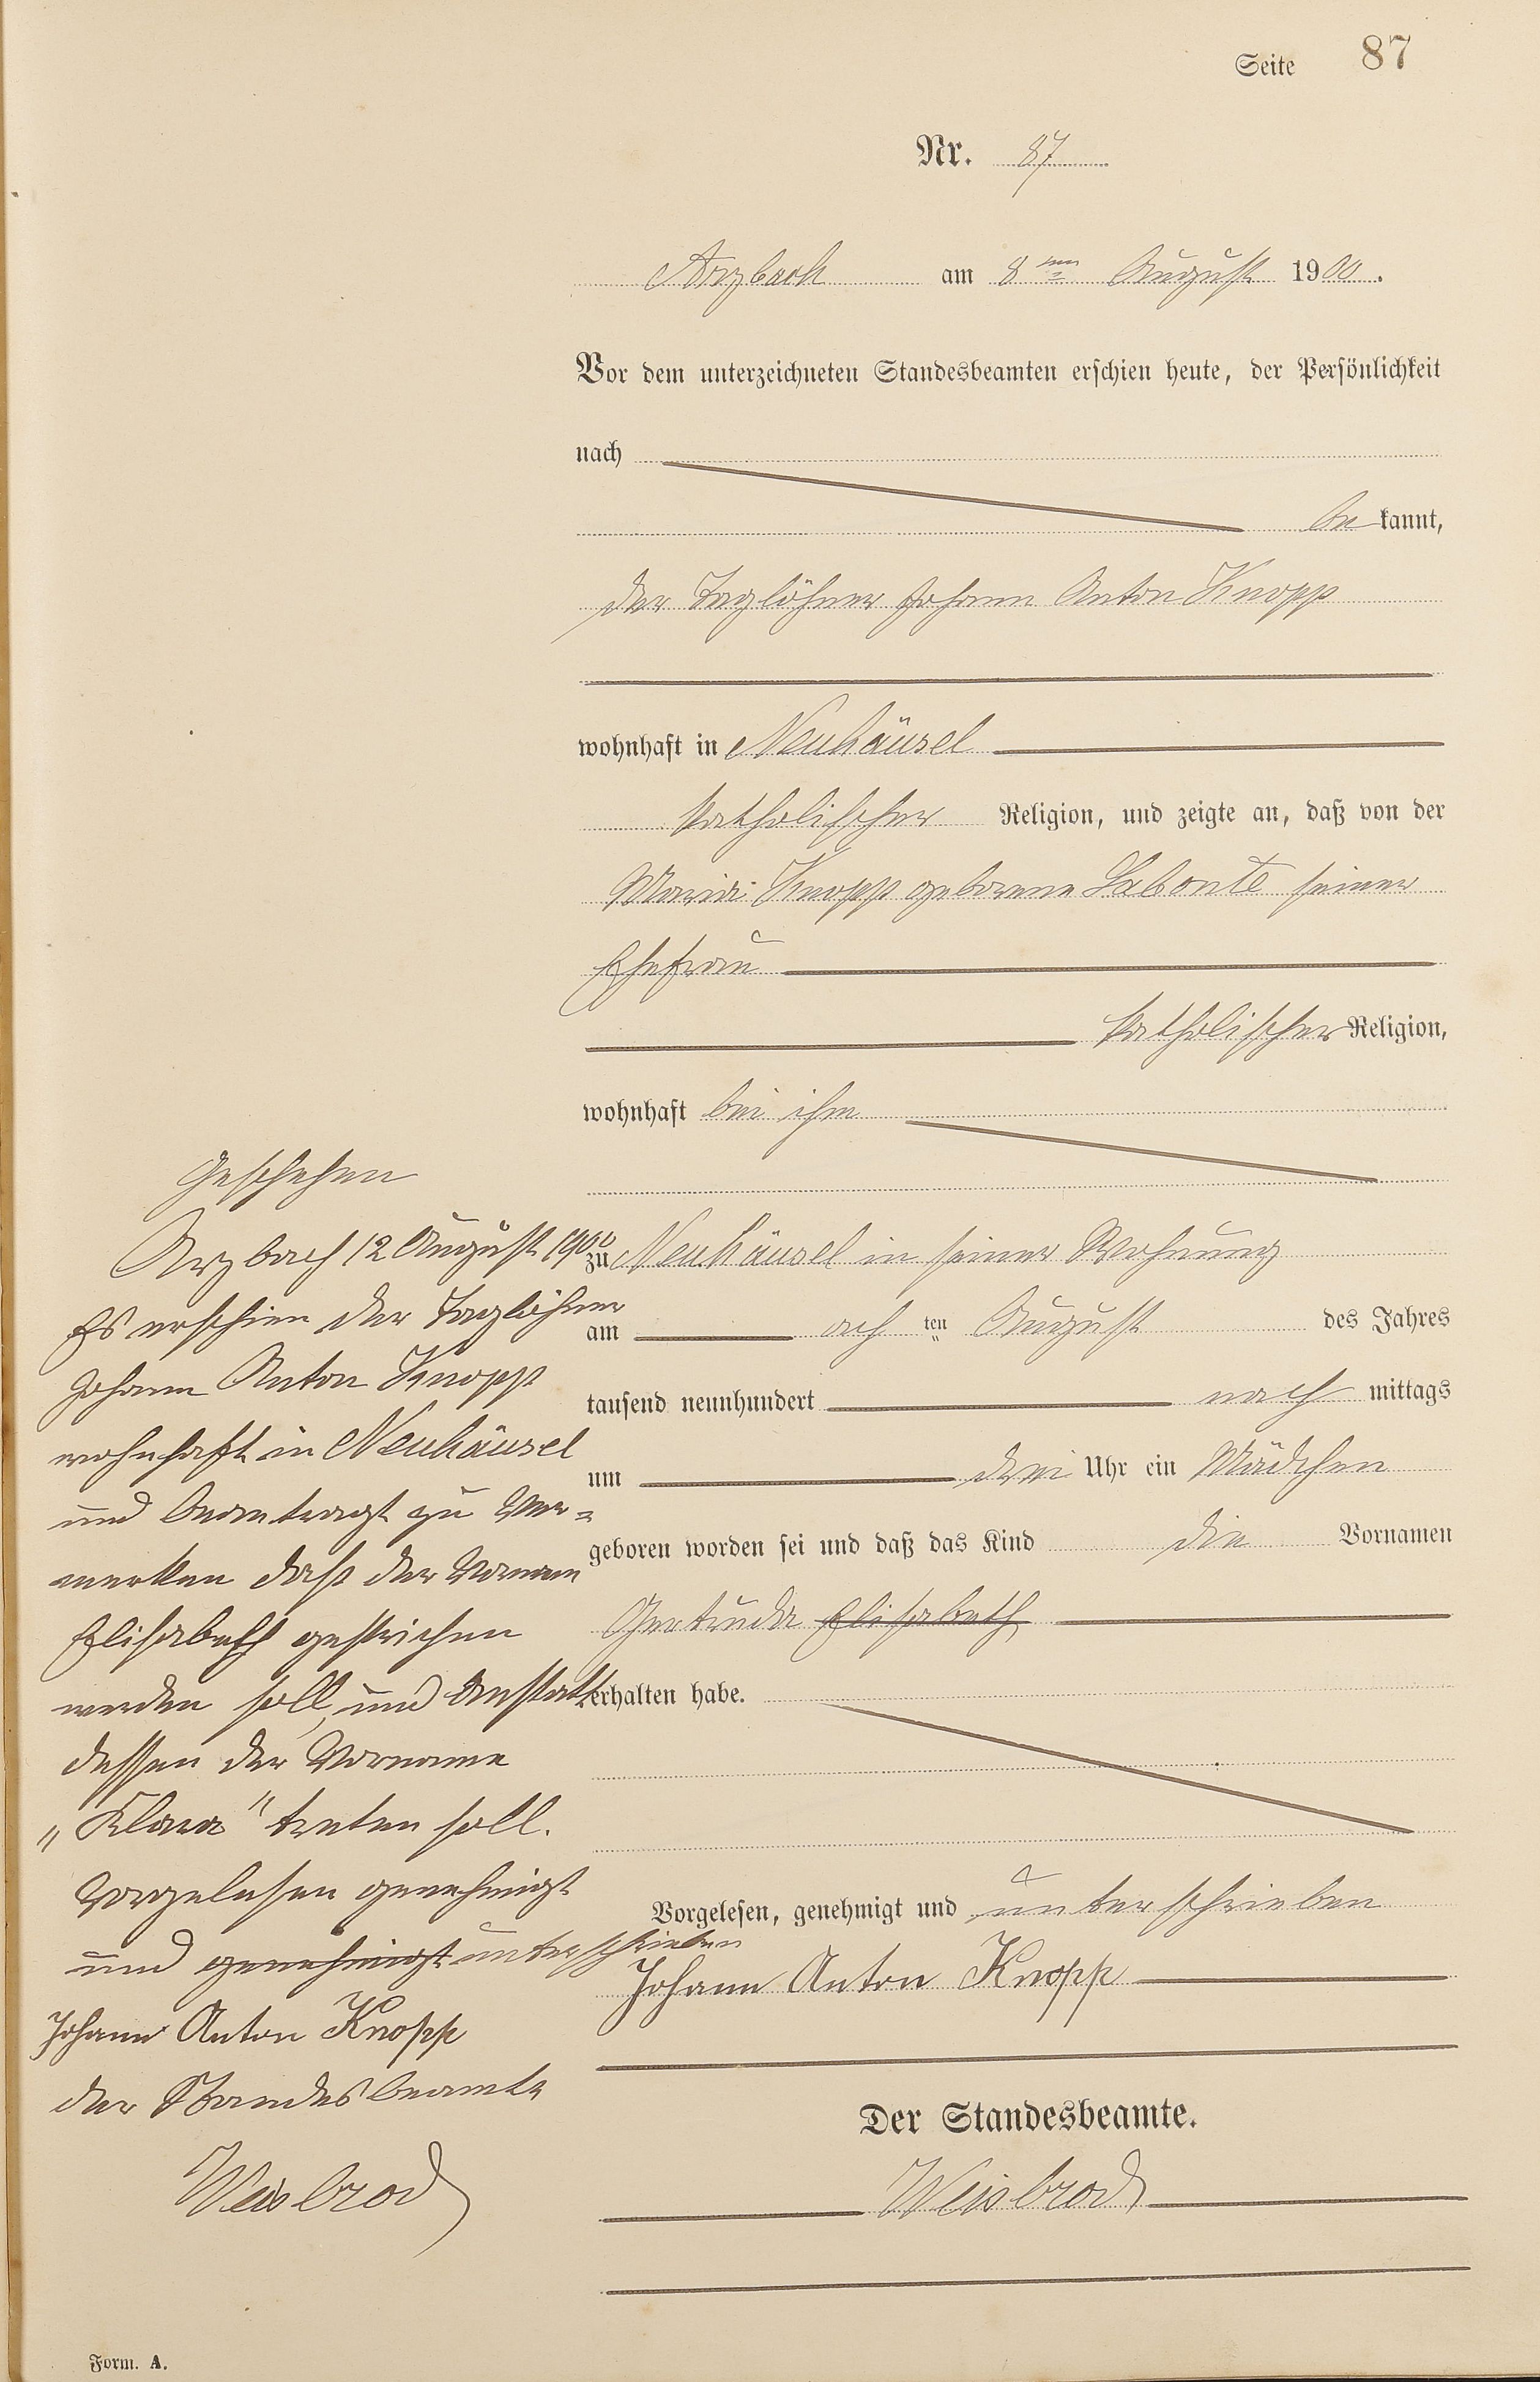 Seite 87
Nr. 87
Arzbach am 8ten August 1900.
Vor dem unterzeichneten Standesbeamten erschien heute, der Persönlichkeit
nach
be kannt,
der Taglöhner Johann Anton Knopp
wohnhaft in Neuhäusel
katholischer Religion, und zeigte an, daß von der
Maria Knopp geborene Labonté seiner
Ehefrau
katholischer Religion,
wohnhaft bei ihm
zu Neuhäusel in seiner Wohnung
am ach ten August des Jahres
tausend neunhundert nach mittags
um drei Uhr ein Mädchen
geboren worden sei und daß das Kind die Vornamen
Gertruda Elisabeth
erhalten habe.
Vorgelesen, genehmigt und unterschrieben
Johann Anton Knopp
Der Standesbeamte.
Weisbrod
Geschehen
Arzbach 12 August 1900
Es erschien der Taglöhner
Johann Anton Knopp
wohnhaft in Neuhäusel
und beantragt zu Ver=
merken daß der Vornam
Elisabeth gestrichen
werden soll, und Anstatt
dessen der Vorname
„Klara" treten soll.
Vorgelesen genehmigt
und genehmigt unterschrieben
Johann Anton Knopp
der Standesbeamte
Weisbrod
Form. A.